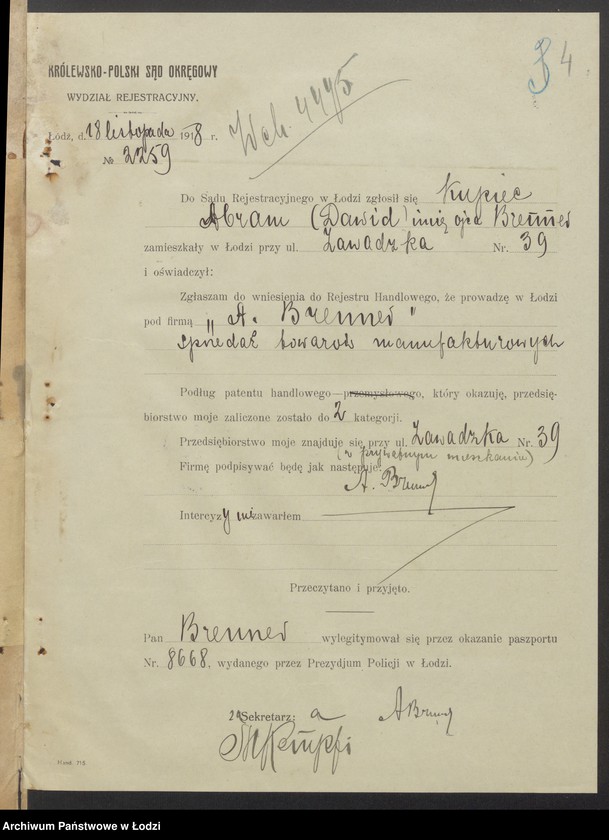 4
KRÓLEWSKO-POLSKI SĄD OKRĘGOWY
WYDZIAŁ REJESTRACYJNY.
Łódź, d. 18 listopada 1918 r.
№ 2259
Wch. 4475
Do Sądu Rejestracyjnego w Łodzi zgłosił się kupiec
Abram (Dawid) imię ojca Brenner
zamieszkały w Łodzi przy ul. Zawadzka Nr. 39
i oświadczył:
Zgłaszam do wniesienia do Rejestru Handlowego, że prowadzę w Łodzi
pod firmą „A. Brenner"
sprzedaż towarów manufakturowych
Podług patentu handlowego—przemysłowego, który okazuję, przedsię-
biorstwo moje zaliczone zostało do 2 kategorji.
Przedsiębiorstwo moje znajduje się przy ul. Zawadzka Nr. 39
(w prywatnym mieszkaniu)
Firmę podpisywać będę jak następuje:
A. Brenner
Intercyzy nie zawarłem
Przeczytano i przyjęto.
Pan Brenner wylegitymował się przez okazanie paszportu
Nr. 8668, wydanego przez Prezydjum Policji w Łodzi.
Sekretarz: ABrenner
Hand. 716
Archiwum Państwowe w Łodzi